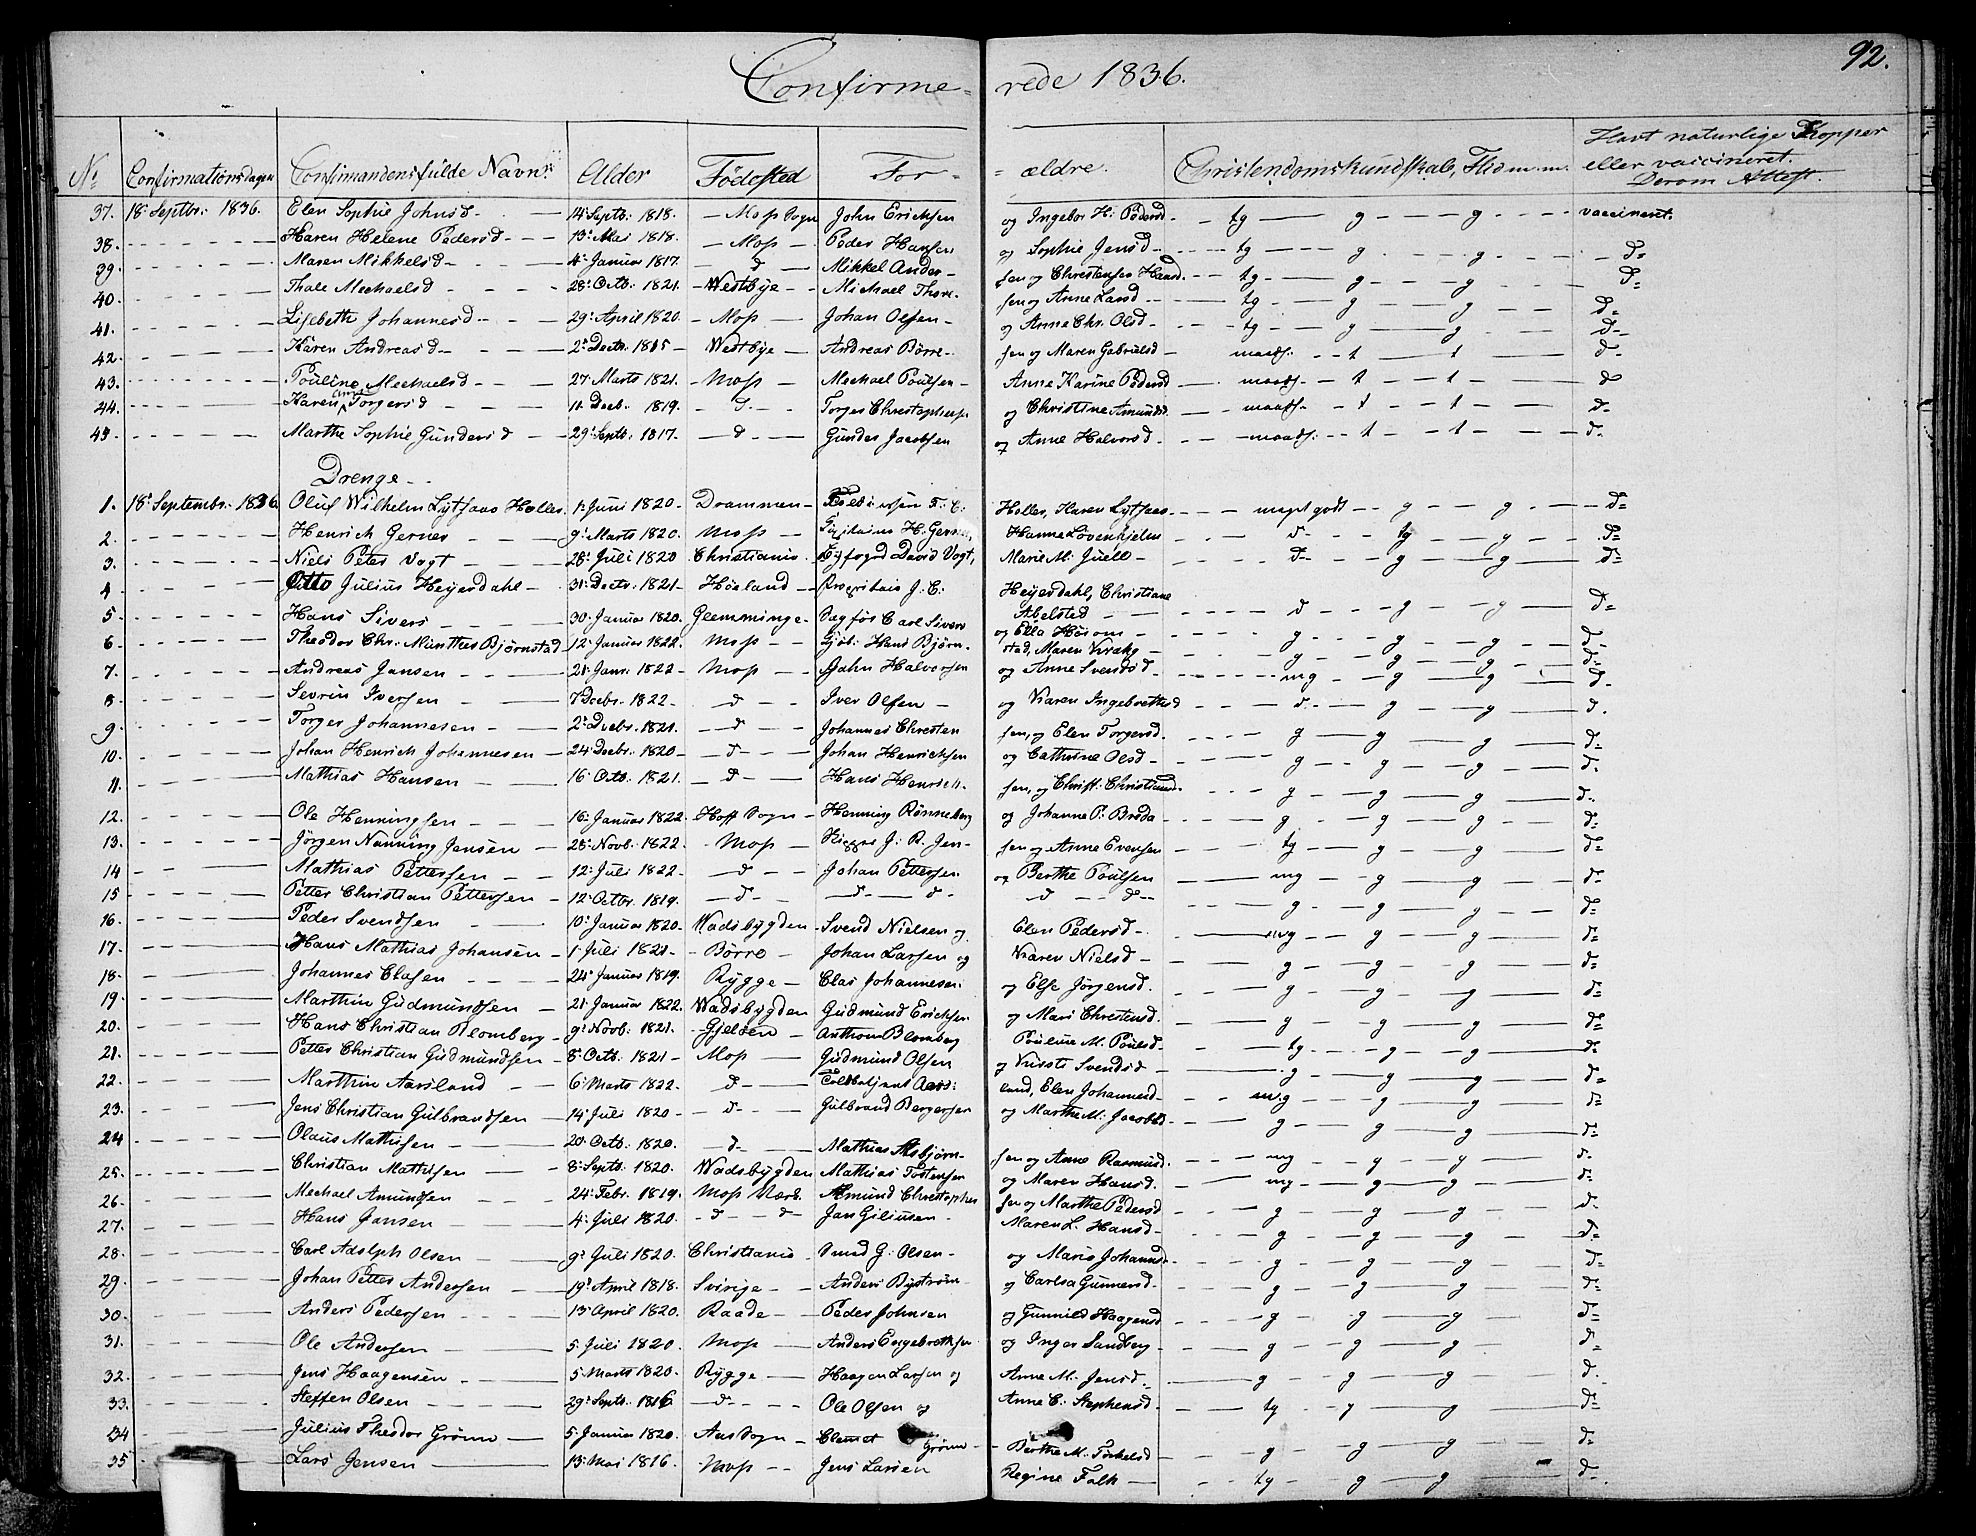 Confirme- rede 1836. 92.
No. Confirmationsdagen Confirmandens fulde Navn. Alder Fødested For- ældre. Christendomskundskab, Flid m.m. Havt naturlige Kopper
eller vaccineret.
Derom Attest.
37. 18 Septbr: 1836. Elen Sophie Johnsd 14 Septb. 1818. Moss Sogn John Ericksen og Ingebor H: Pedersd tg g g vaccineret.
38. Karen Helene Pedersd 13 Mai 1818. Moss Peder Hansen og Sophie Jensd tg g g d=
39. Maren Mikkelsd 4 Januar 1817. d Mikkel Ander- sen og Christense Hansd tg g g d=
40. Thale Mechaelsd 28 Octb. 1821. Westbye Michael Thore- sen og Anne Larsd tg g g d=
41. Lisebeth Johannesd 29 April 1820. Moss Johan Olsen og Anne Chr. Olsd tg g g d
42. Karen Andreasd 2 Decbr. 1815 Westbye Andreas Børre- sen og Maren Gabrielsd maads. t t d
43. Pouline Mechaelsd 27 Marts 1821. Moss Mechael Poulsen Anne Karine Pedersd maads. t t d
44. Karen Torgersd 11 Decb. 1819. d Torger Christophers og Christine Amundsd maads. t t d
45. Marthe Sophie Gundersd 29 Septb. 1817. d Gunder Jacobsen og Anne Halvorsd maads. t t d
Drenge
1. 18 Septembr. 1836 Oluf Wilhelm Lytsaas Holler 1 Juni 1820 Drammen F. C. Holler, Karen Lytsaas meget godt g g d=
2. Henrich Gerner 9 Marts 1820. Moss H. Gerner, Hanne Løvenhjelm d tg g d=
3. Niels Peter Vogt 28 Juli 1820 Christiania Byfoged David Vogt, Marie M: Juell d g g d=
4 Otto Julius Heyerdahl 31 Decbr. 1821 Høland J. C: Heyerdahl, Christiane
Abelsted d g g d=
5 Hans Sivers 30 Januar 1820. Glemminge Carl Sivers og Ella Høiom g g g d
6 Theodor Chr: Munthe Bjørnstad 12 Januar 1822. Moss Hans Bjørn- stad, Maren Krakg g g g d
7. Andreas Jansen 21 Janr. 1822 Moss John Halvorsen og Anne Svendsd mg g g d
8 Sevrin Iversen 7 Decbr. 1822 d Iver Olsen og Karen Ingebretsd d g g d.
9 Torger Johannesen 2 Decbr. 1821. d Johannes Christen sen, og Elen Torgersd. g g g d=
10. Johan Henrich Johannesen 24 Decbr. 1820 d Johan Henrichsen og Cathrine Olsd g g g d
11. Mathias Hansen 16 Octb. 1821. d Hans Henrich- sen, og Christ: Christiansd g g g d
12. Ole Henningsen 16 Januar 1822. Hoff Sogn Henning Rønneberg og Johanne P: Broda g g g d=
13. Jørgen Nanning Jensen 28 Novb. 1822. Moss J: R. Jen- sen og Anne Evensen tg g g d=
14 Mathias Pettersen 12 Juli 1822 d Johan Pettersen og Berthe Poulsen mg g g d=
15 Petter Christian Pettersen 12 Octbr. 1819. d d d d d g g g d=
16. Peder Svendsen 10 Januar 1820. Wadsbygden Svend Nielsen og Elen Pedersd mg g g d=
17. Hans Mathias Johansen 1 Juli 1821 Børre Johan Larsen og Karen Nielsd g g g d=
18. Johannes Clasen 24 Januar 1819. Rygge Clas Johannesen og Else Jørgensd. g g g d=
19 Marthin Gudmundsen 21 Januar 1822. Wadsbygden Gudmund Ericksen og Mari Chrestensd. g g g d=
20. Hans Christian Blomberg 9 Novb. 1821. Gjeløen Anthon Blomberg Pouline M. Poulsd tg g g d=
21. Petter Christian Gudmundsen 8 Octb. 1821 Moss Gudmund Olsen og Svendsd g g g d=
22. Marthin Aarsland 6 Marts 1822. d Toldbetjent Aars: land, Elen Johannesd mg g g d
23. Jens Christian Gulbrandsen 14 Juli 1820 d Gulbrand Bergersen og Marthe M: Jacobsd g g g d=
24 Olaus Mathisen 20 Octb. 1820. d Mathias Asbjørn- sen og Anne Rasmusd. mg g g d
25. Christian Mathisen 8 Septb. 1820. Wadsbygden Mathias Tostensen og Maren Hansd. mg g g d=
26. Mechael Amundsen 24 Febr. 1819. Moss Værk. Amund Chrestopher sen og Marthe Pedersd g g g d
27. Hans Jansen 4 Juli 1820. d d Jan Giliusen Maren L. Hansd g g g d=
28. Carl Adolph Olsen 9 Juli 1820. Christiania Smed G: Olsen og Maria Johannsd g g g d=
29. Johan Petter Andersen 19 April 1818. Sverige Anders Byström og Carlsa Gunnersd g g g d=
30. Anders Pedersen 13 April 1820. Raade Peder Johnsen og Gunnild Haagensd g g g d=
31. Ole Andersen 5 Juli 1820. Moss Anders Engebrethsen og Inger Sandberg g g g d=
32. Jens Haagensen 5 Marts 1820. Rygge Haagen Larsen og Anne M. Jensd. g g g d.
33. Steffen Olsen 29 Septb. 1816 d Ole Olsen og Anne C. Stephensd tg g g d=
34 Julius Theodor Grønn 5 Januar 1820. Aas Sogn Clemet Grønn Berthe M. Torkelsd g g g d=
35 Lars Jensen 13 Mai 1816. Moss Jens Larsen Regine Falk tg g g d